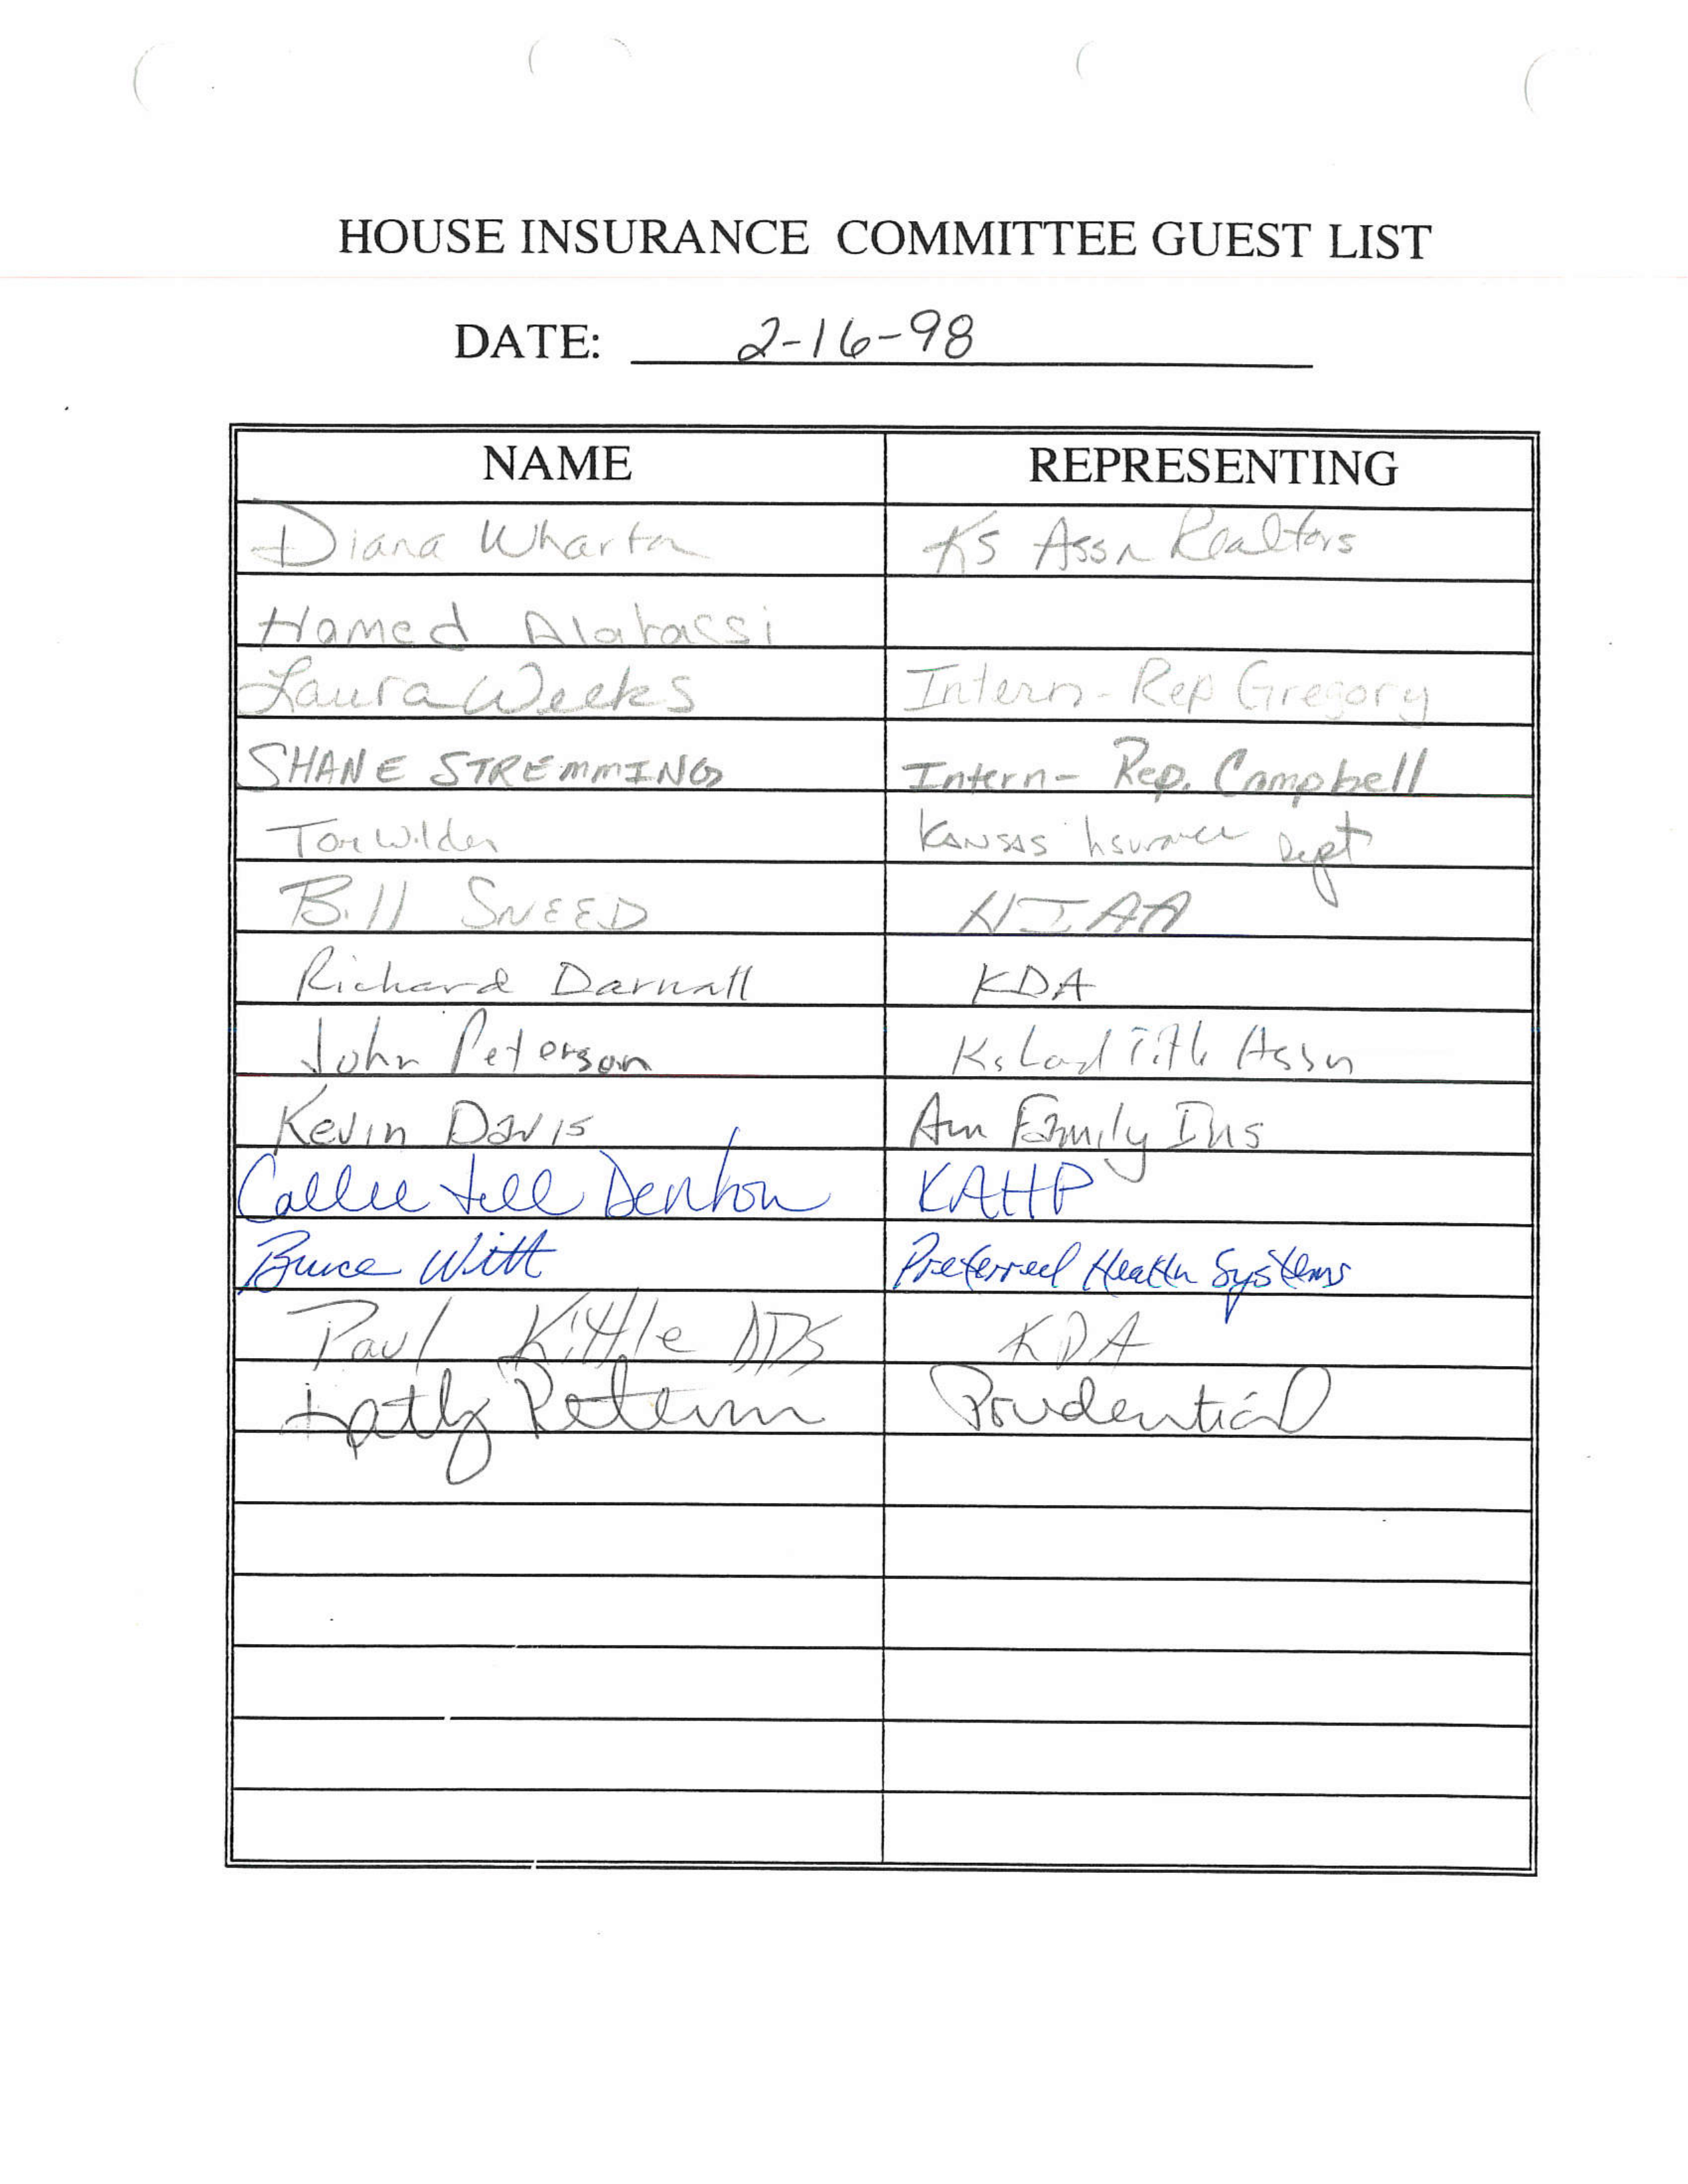 HOUSE INSURANCE COMMITTEE GUEST LIST
DATE: 2-16-98
NAME REPRESENTING
Diana Wharton Ks Assn Realtors
Hamed Alatassi
Laura Weeks Intern - Rep Gregory
SHANE STREMMING Intern - Rep. Campbell
Tom Wilder KANSAS Insurance Dept
Bill SNEED HIAA
Richard Darnall KDA
John Peterson Ks Land Title Assn
Kevin Davis Am Family Ins
Callie Jill Denton KAHP
Bruce Witt Preferred Health Systems
Paul Kittle DDS KDA
Patty Prudential